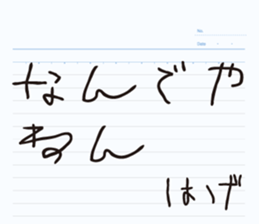 No.
Date　・　・
なんでや
ねん
はげ